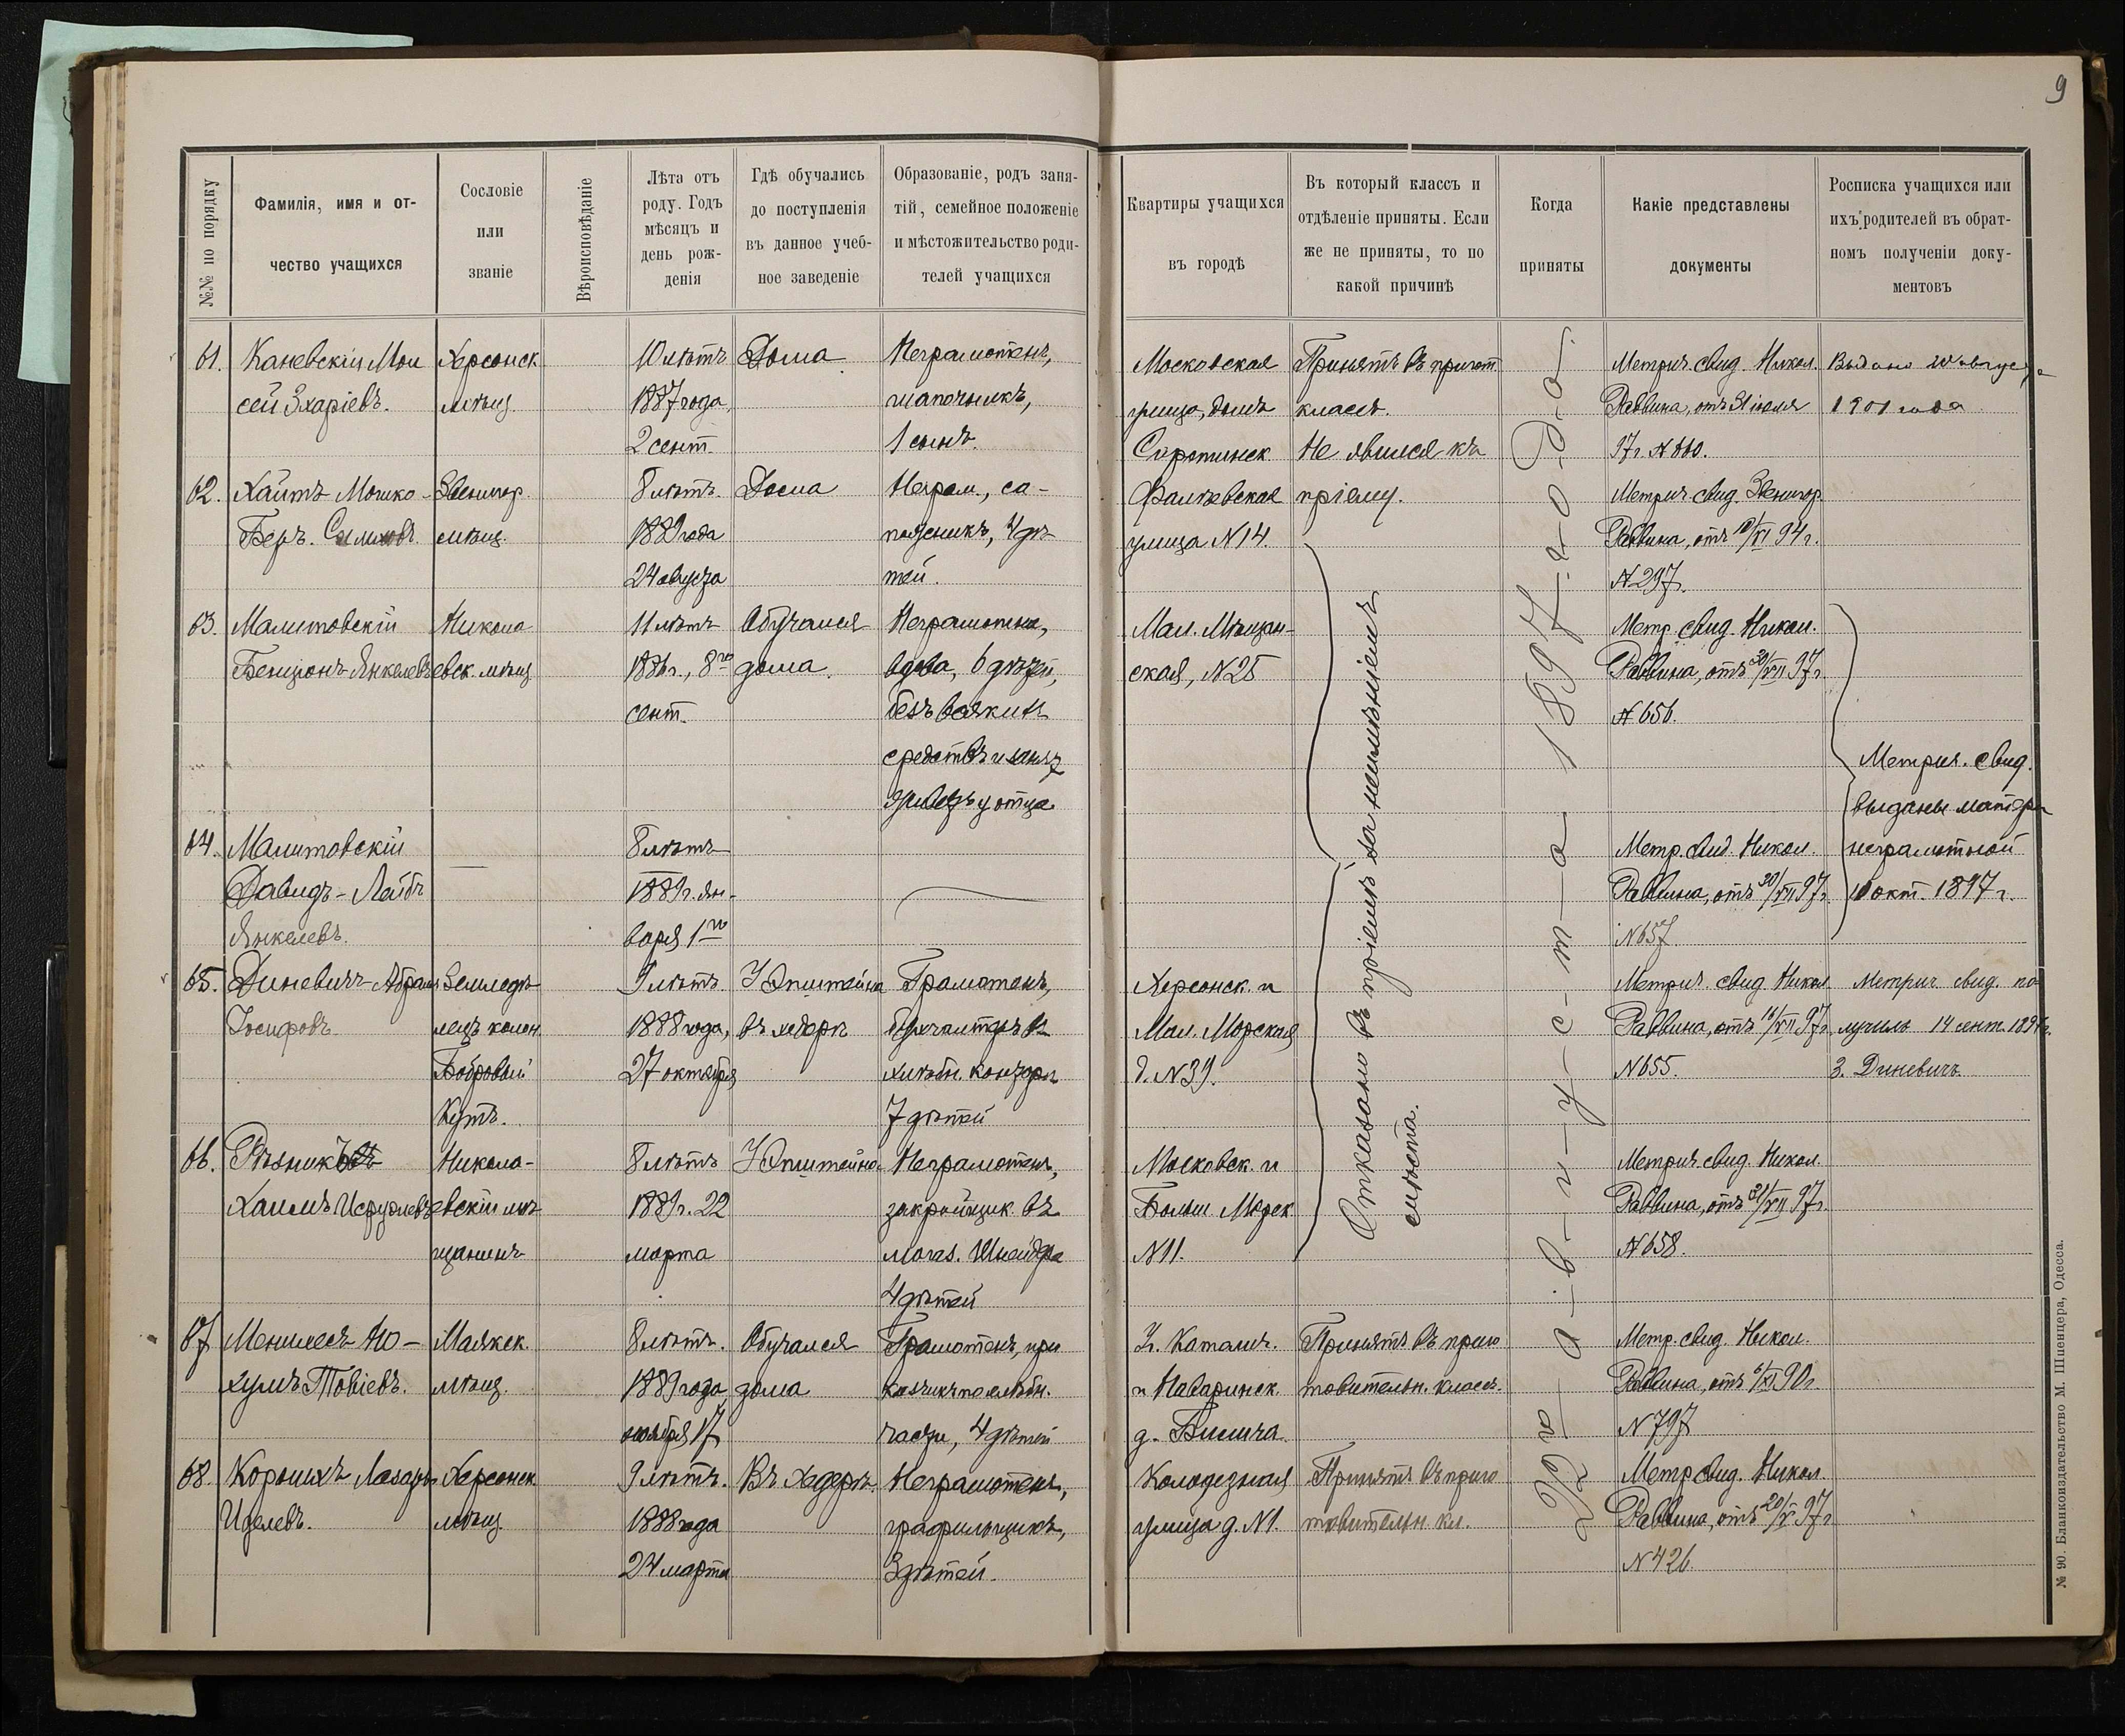 9
№№ по порядку
Фамилія, имя и от-
чество учащихся
Сословіе
или
званіе
Вѣроисповѣданіе
Лѣта отъ
роду. Годъ
мѣсяцъ и
день рож-
денія
Гдѣ обучались
до поступленія
въ данное учеб-
ное заведеніе
Образованіе, родъ заня-
тій, семейное положеніе
и мѣстожительство роди-
телей учащихся
Квартиры учащихся
въ городѣ
Въ который классъ и
отдѣленіе приняты. Если
же не приняты, то по
какой причинѣ
Когда
приняты
Какіе представлены
документы
Росписка учащихся или
ихъ родителей въ обрат-
номъ полученіи доку-
ментовъ
61.
Каневскій Мои
сей Зхаріевъ.
Херсонск.
мѣщ.
10 лѣтъ
1887 года,
2 сент.
Дома
Неграмотенъ,
шапочникъ,
1 сынъ.
Московская
улица, домъ
Сиротинск.
Принятъ въ пригот.
классъ.
Не явился къ
пріему.
Метрич. свид. Никол.
Раввина, отъ 31 іюля
97 г. № 660.
Выдано
1901 года
62.
Хаитъ Мошко-
Беръ.
Звенигор.
мѣщ.
8 лѣтъ.
1889 года
24 августа
Дома
Неграм., са-
пожникъ, 4 дѣ-
тей.
Фалѣевская
улица № 14.
Метрич. свид. Звенигор.
Раввина, отъ 18/VI 94 г.
№ 297.
63.
Малитовскій
Бенціонъ Янкелевъ
Никола-
евск. мѣщ.
11 лѣтъ
1886 г., 8го
сент.
Обучался
дома.
Неграмотна,
вдова, 6 дѣтей,
безъ всякихъ
средствъ и занят.
живетъ у отца
Мал. Мѣщан-
ская, № 25
Метр. свид. Никол.
Раввина, отъ 30/VII 97 г.
№ 656.
Метрич. свид.
выданы матери
неграмотной
10 окт. 1897 г.
64.
Малитовскій
Давидъ-Лейбъ
Янкелевъ.
8 лѣтъ
1889 г. ян-
варя 1го
Метр. свид. Никол.
Раввина, отъ 30/VII 97 г.
№ 657
65.
Диневичъ Абрамъ
Іосифовъ
Земледѣ-
лецъ колон.
Бобровый
Кутъ.
9 лѣтъ
1888 года,
27 октября
У Эпштейна
въ хедерѣ
Грамотенъ,
бухгалтеръ въ
хлѣбн. конторѣ
7 дѣтей
Херсонск. и
Мал. Морская
д. № 39.
Отказано въ пріемѣ за неимѣніемъ
мѣста.
Метрич. свид. Никол.
Раввина, отъ 16/VII 97 г.
№ 655.
Метрич. свид. по-
лучилъ 14 сент. 1897 г.
З. Диневичъ
66.
Рѣзник
Хаимъ Исрулевъ
Никола-
евскій мѣ-
щанинъ
8 лѣтъ
1889 г. 22
марта
У Эпштейна
Неграмотенъ,
закройщик въ
магаз. Шнейдера
4 дѣтей
Московск. и
Больш. Морск
№ 11.
Метрич. свид. Никол.
Раввина, отъ 31/VII 97 г.
№ 658.
67
Менимесъ Но-
хумъ Товіевъ.
Маякск.
мѣщ.
8 лѣтъ.
1889 года
ноября 17
Обучался
дома
Грамотенъ, при
казчикъ по хлѣбн.
части, 4 дѣтей
и Наваринск.
Принятъ въ приго
товительн. классъ.
Метр. свид. Никол.
Раввина, отъ 6/XI 90 г.
№ 797
68.
Хорошихъ Лазарь
Ицелевъ.
Херсонск.
мѣщ.
9 лѣтъ.
1888 года
24 марта
Въ хедерѣ.
Неграмотенъ,
графильщикъ,
3 дѣтей.
Колодезная
улица д. № 1.
Принятъ въ приго
товительн. кл.
22го а-в-г-у-с-т-а 1897-г-о г-о-д-а.
Метр. свид. Никол.
Раввина, отъ 20/V 97 г
№ 426
№ 90. Бланкоиздательство М. Шпенцера, Одесса.